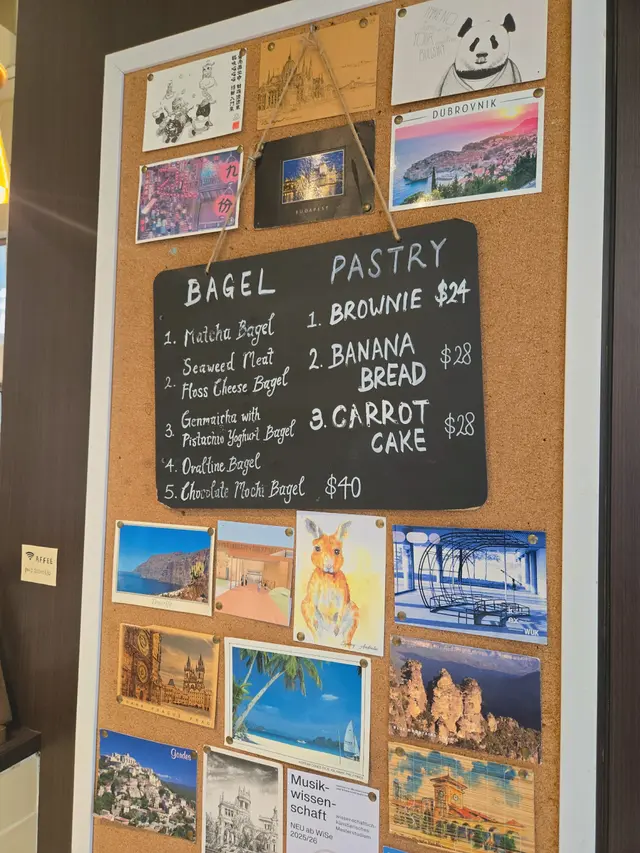 DUBROVNIK
九
份
BUDAPEST
BAGEL
1. Matcha Bagel
2. Seaweed Meat
Floss Cheese Bagel
3. Genmaicha with
Pistachio Yoghurt Bagel
4. Ovaltine Bagel
5. Chocolate Mochi Bagel $40
PASTRY
1. BROWNIE $24
2. BANANA
BREAD $28
3. CARROT
CAKE $28
WUK
Gordes
Musik-
wissen-
schaft
NEU ab WiSe
2025/26